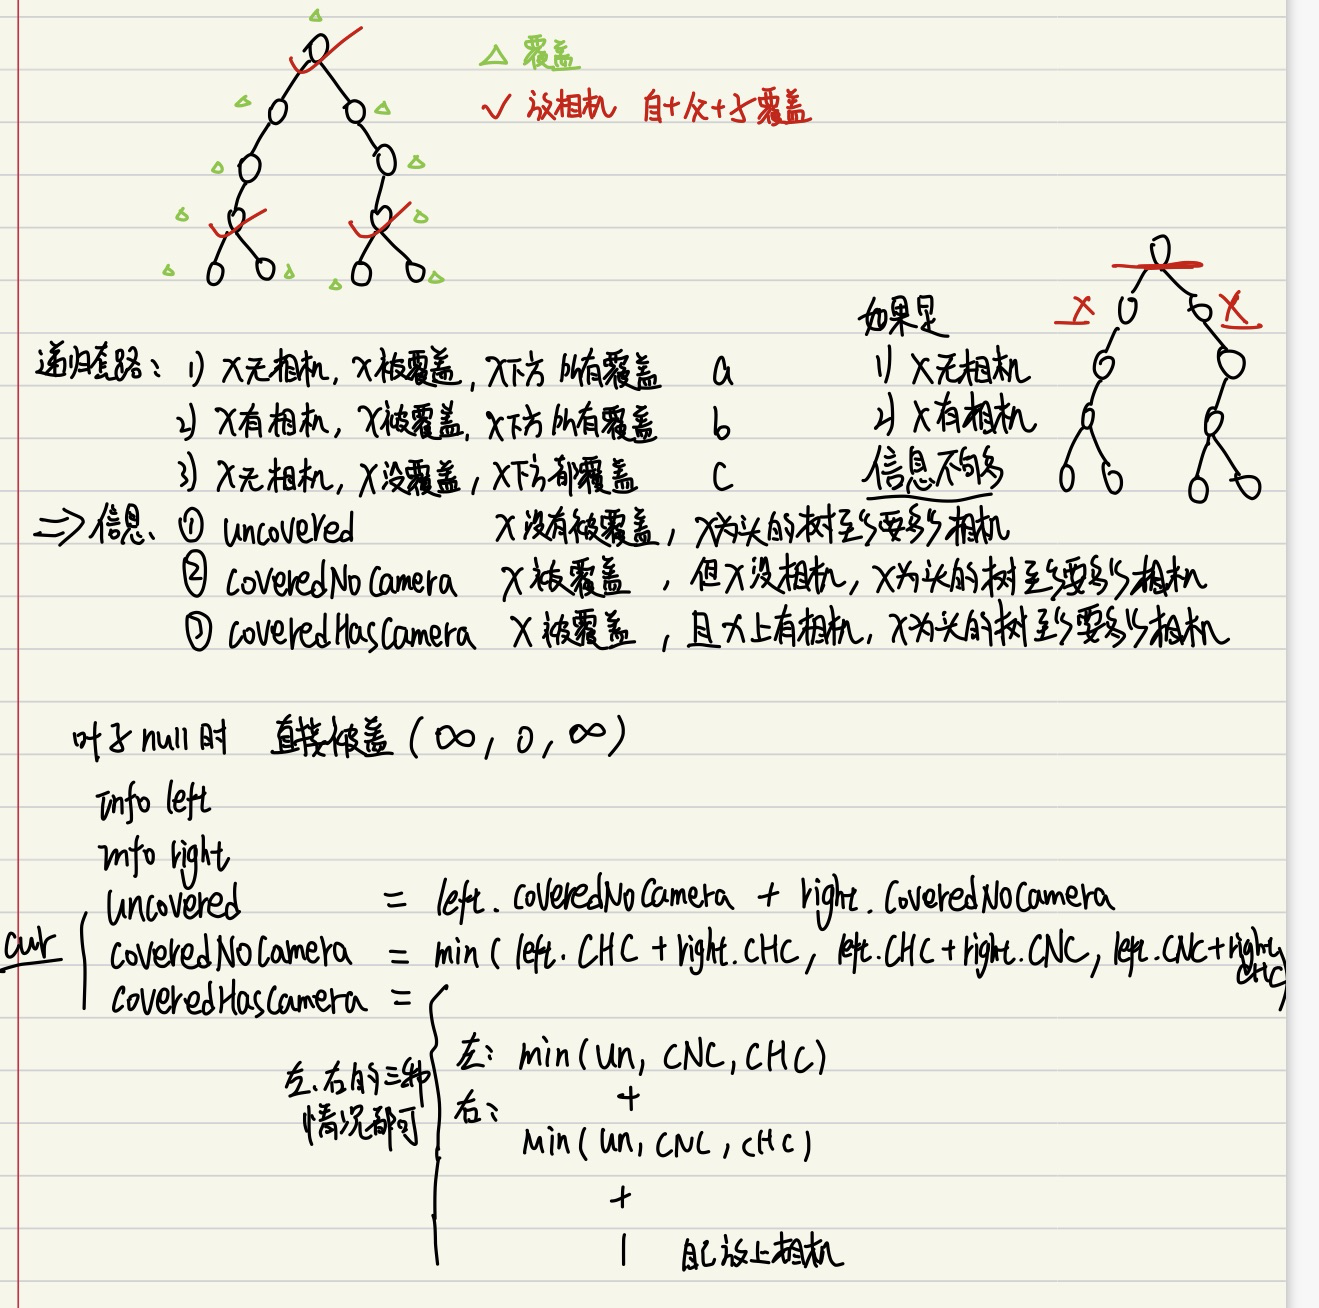 △ 覆盖
✓ 放相机 自+父+子覆盖
如果是
1) X无相机
2) X有相机
信息不够多
递归套路: 1) X无相机, X被覆盖, X下方所有覆盖 a
2) X有相机, X被覆盖, X下方所有覆盖 b
3) X无相机, X没覆盖, X下方都覆盖 c
=> 信息: ① uncovered X没有被覆盖, X为头的树至少要多少相机
② coveredNoCamera X被覆盖, 但X没相机, X为头的树至少要多少相机
③ coveredHasCamera X被覆盖, 且X上有相机, X为头的树至少要多少相机
叶子null时 直接被盖 (∞, 0, ∞)
Info left
Info right
uncovered = left.coveredNoCamera + right.coveredNoCamera
cur
coveredNoCamera = min( left.CHC + right.CHC, left.CHC + right.CNC, left.CNC + right.CHC)
coveredHasCamera =
左: min(un, CNC, CHC)
左、右的三种情况都可
+
右:
min(un, CNC, CHC)
+
1 自己放上相机